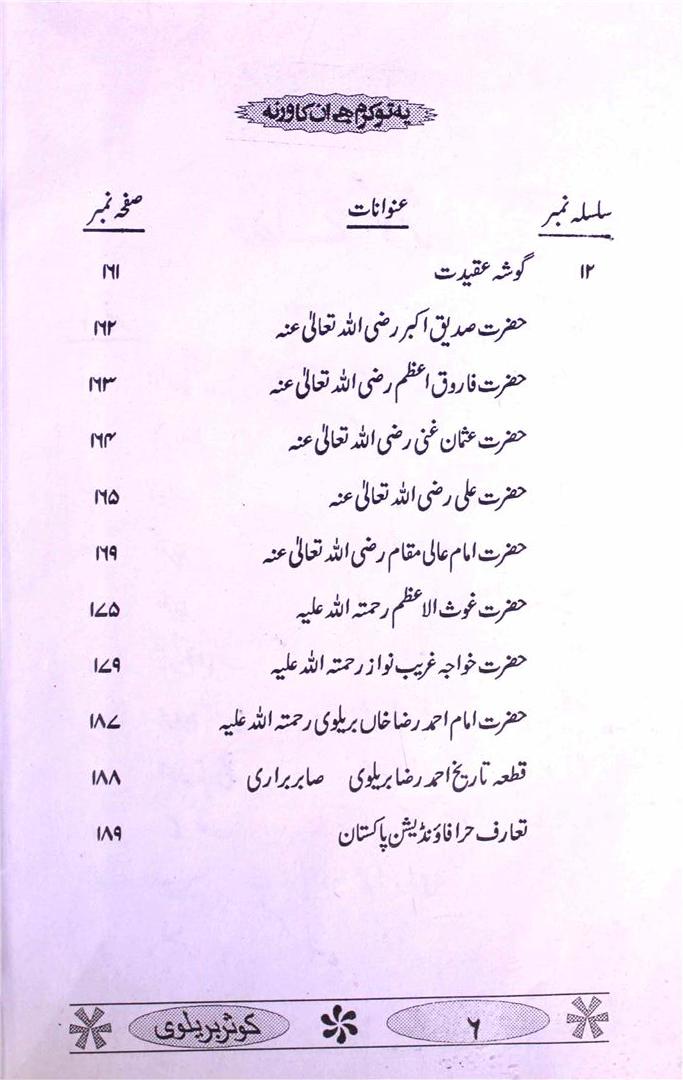 یہ تو کرم ہے ان کا ورنہ
سلسلہ نمبر عنوانات صفحہ نمبر
۱۲ گوشہ عقیدت ۱۶۱
حضرت صدیق اکبر رضی اللہ تعالیٰ عنہ ۱۶۲
حضرت فاروق اعظم رضی اللہ تعالیٰ عنہ ۱۶۳
حضرت عثمان غنی رضی اللہ تعالیٰ عنہ ۱۶۴
حضرت علی رضی اللہ تعالیٰ عنہ ۱۶۵
حضرت امام عالی مقام رضی اللہ تعالیٰ عنہ ۱۶۹
حضرت غوث الاعظم رحمتہ اللہ علیہ ۱۷۵
حضرت خواجہ غریب نواز رحمتہ اللہ علیہ ۱۷۹
حضرت امام احمد رضا خاں بریلوی رحمتہ اللہ علیہ ۱۸۷
قطعہ تاریخ احمد رضا بریلوی صابر براری ۱۸۸
تعارف حرا فاؤنڈیشن پاکستان ۱۸۹
۶ کوثر بریلوی